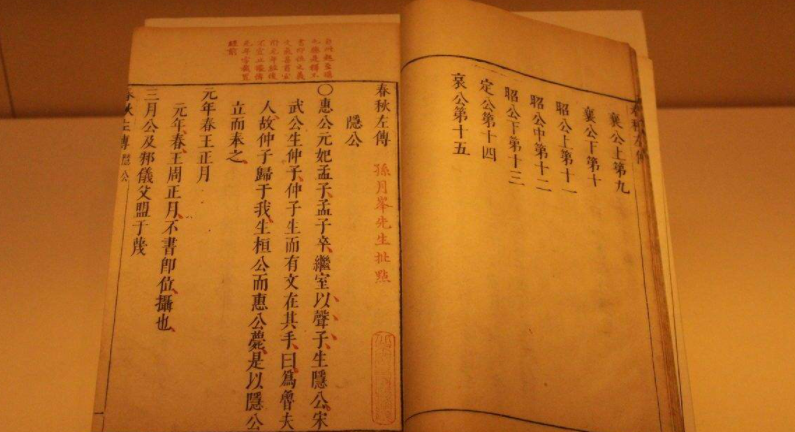 春秋左傳
襄公上第九
襄公下第十
昭公上第十一
昭公中第十二
昭公下第十三
定公第十四
哀公第十五
春秋左傳
孫月峯先生批點
隱公
○惠公元妃孟子孟子卒繼室以聲子生隱公宋
武公生仲子仲子生而有文在其手曰爲魯夫
人故仲子歸于我生桓公而惠公薨是以隱公
立而奉之
元年春王正月
元年春王周正月不書卽位攝也
三月公及邾儀父盟于蔑
春秋左傳隱公